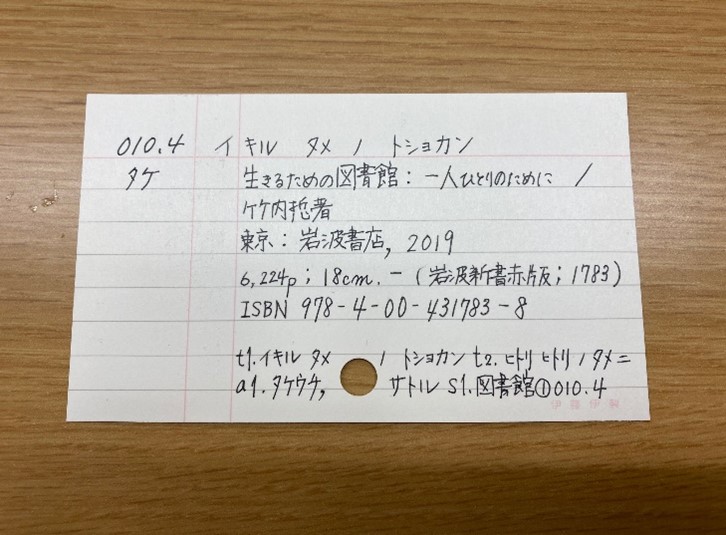 010.4 イキル タメ ノ トショカン
タケ 生きるための図書館: 一人ひとりのために /
竹内悊著
東京: 岩波書店, 2019
6,224p; 18cm. - (岩波新書赤版; 1783)
ISBN 978-4-00-431783-8
t1.イキル タメ ノ トショカン t2.ヒトリ ヒトリ ノ タメニ
a1.タケウチ, サトル S1.図書館①010.4
伊藤伊